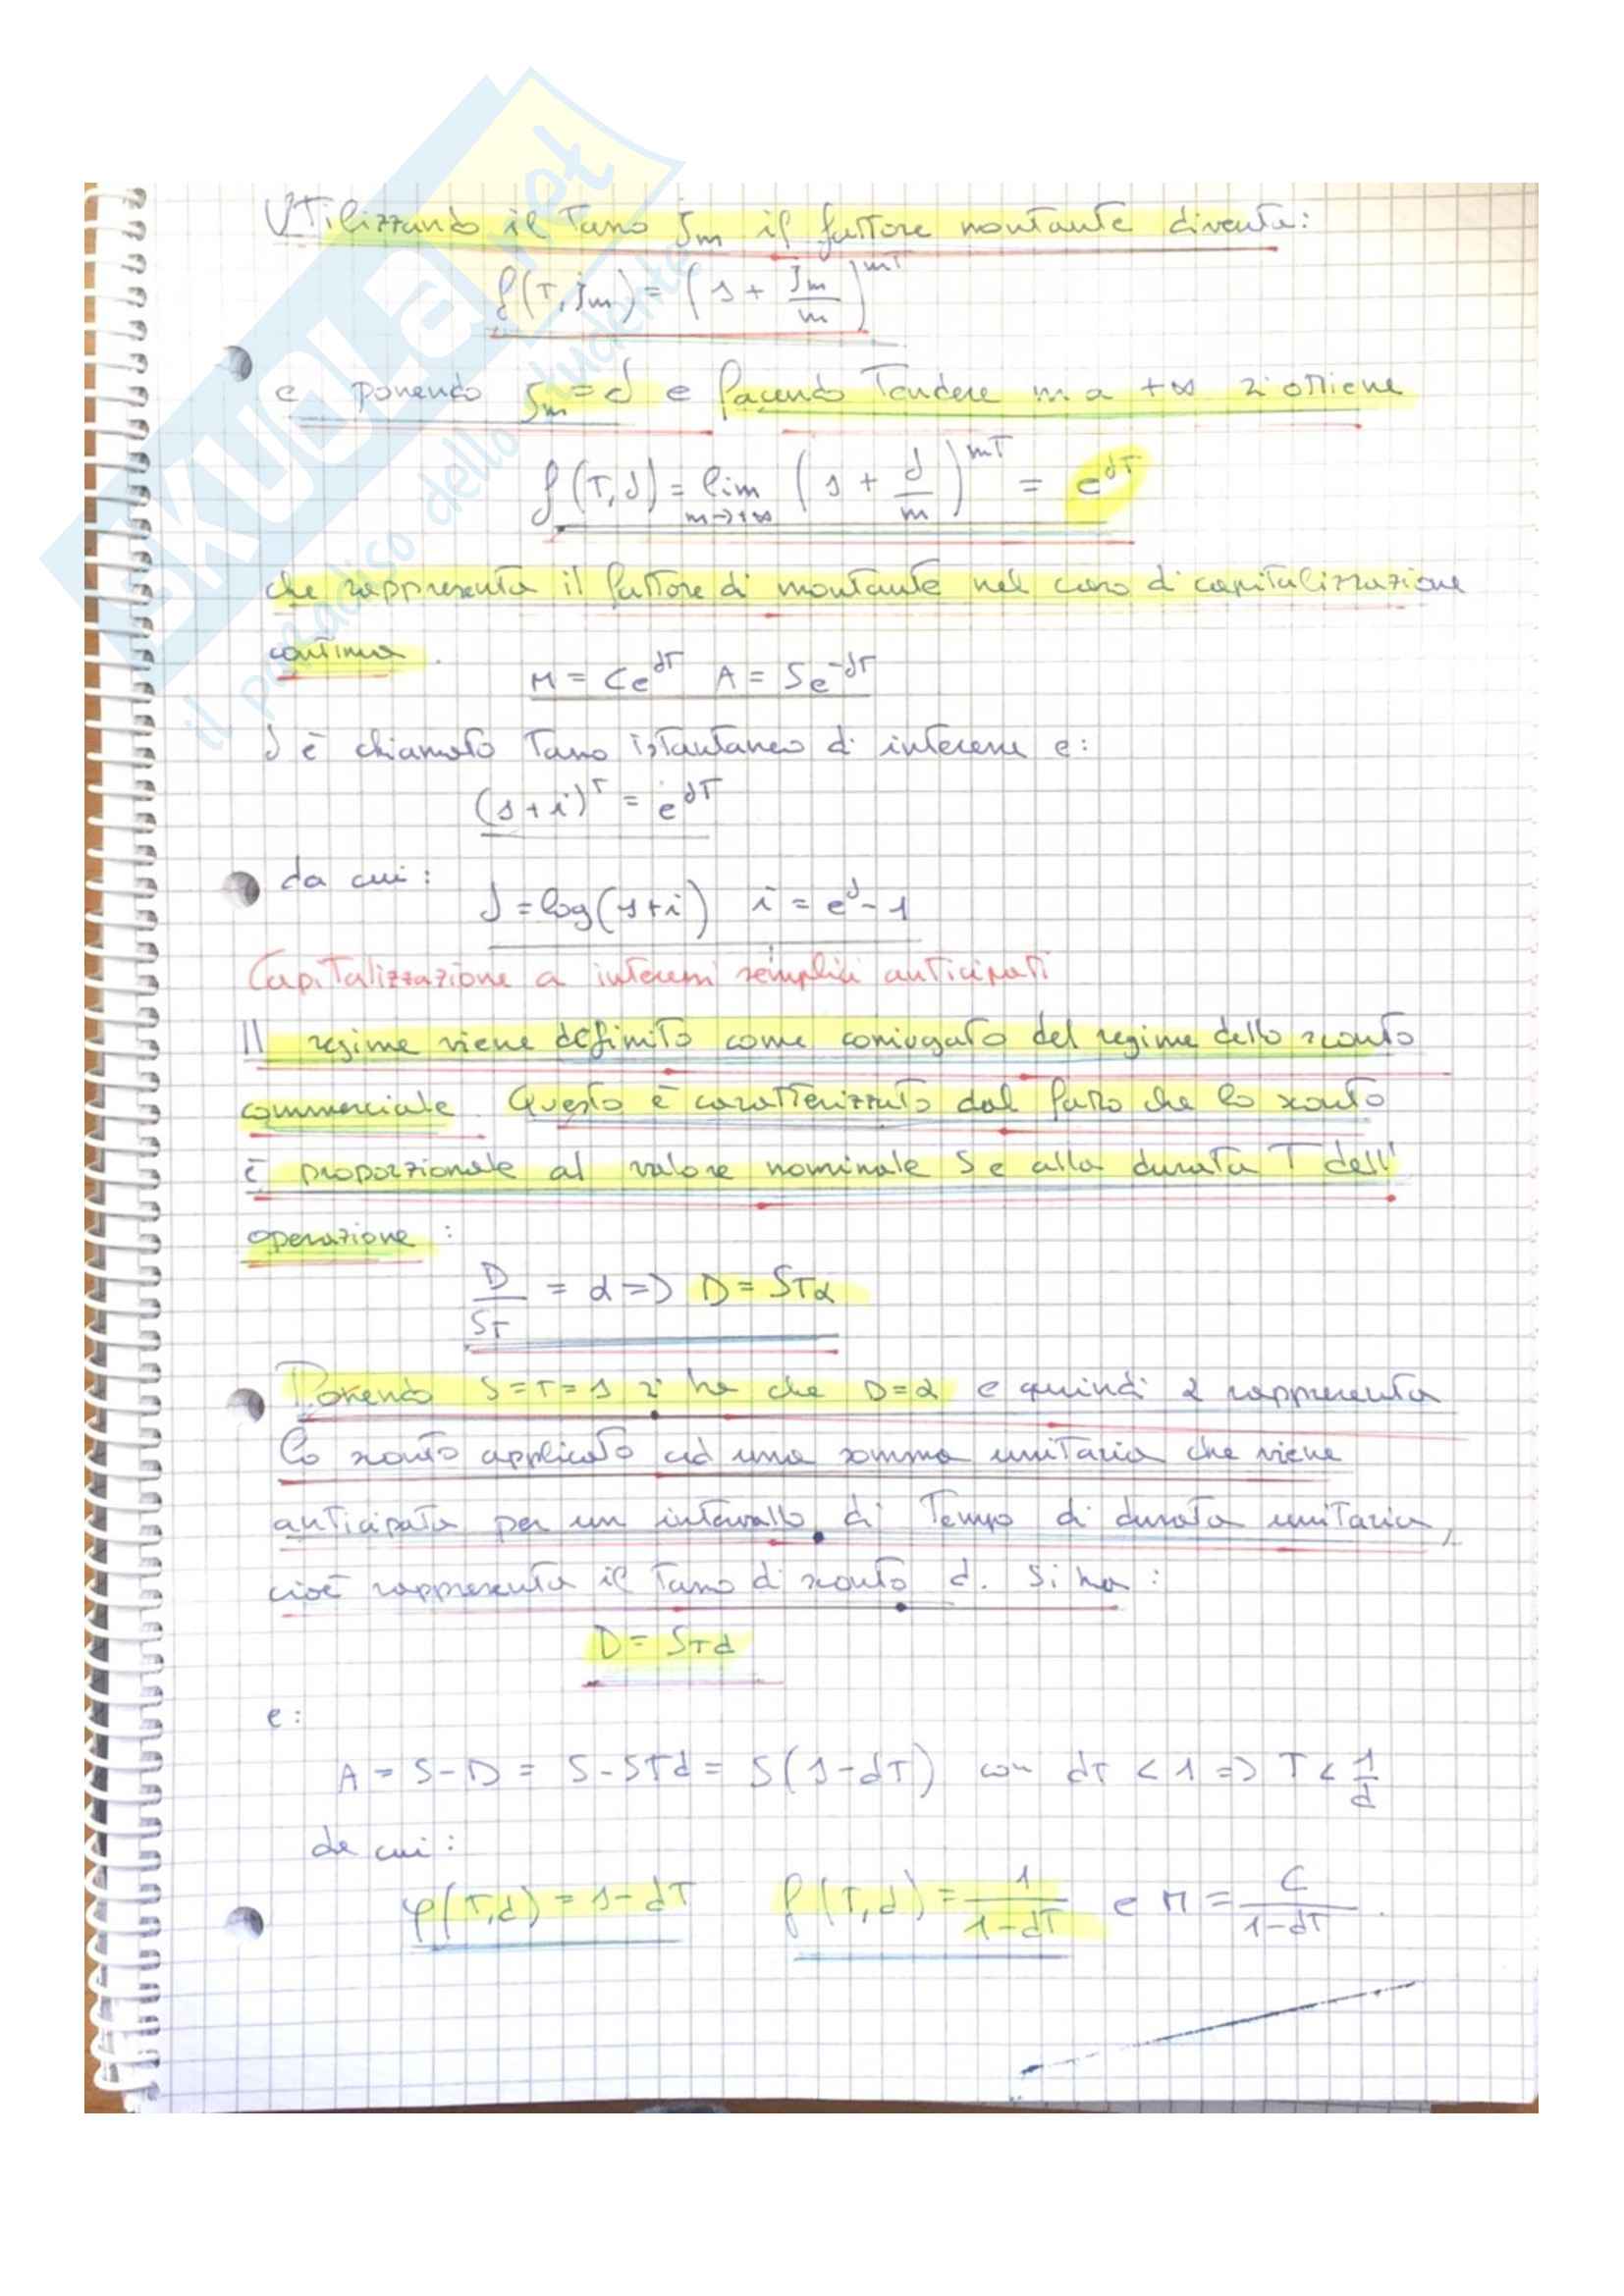 Utilizzando il tasso Jm il fattore montante diventa:
f(T, Jm) = (1 + Jm/m)^mT
e ponendo Jm = δ e facendo Tendere m a +∞ si ottiene
f(T, δ) = lim m→+∞ (1 + δ/m)^mT = e^δT
che rappresenta il fattore di montante nel caso di capitalizzazione
continua.
M = Ce^δT A = Se^-δT
δ è chiamato Tasso istantaneo di interesse e:
(1+i)^T = e^δT
da cui:
δ = log(1+i) i = e^δ - 1
Capitalizzazione a interessi semplici anticipati
Il regime viene definito come coniugato del regime dello sconto
commerciale. Questo è caratterizzato dal fatto che lo sconto
è proporzionale al valore nominale S e alla durata T dell'
operazione:
D/ST = α => D = STα
Ponendo S = T = 1 si ha che D = α e quindi α rappresenta
lo sconto applicato ad una somma unitaria che viene
anticipata per un intervallo di Tempo di durata unitaria,
cioè rappresenta il Tasso di sconto d. Si ha:
D = STd
e:
A = S - D = S - STd = S(1 - dT) con dT < 1 => T < 1/d
da cui:
φ(T,d) = 1 - dT f(T,d) = 1/(1-dT) e M = C/(1-dT).
SKUOLA.net
il paradiso dello studente